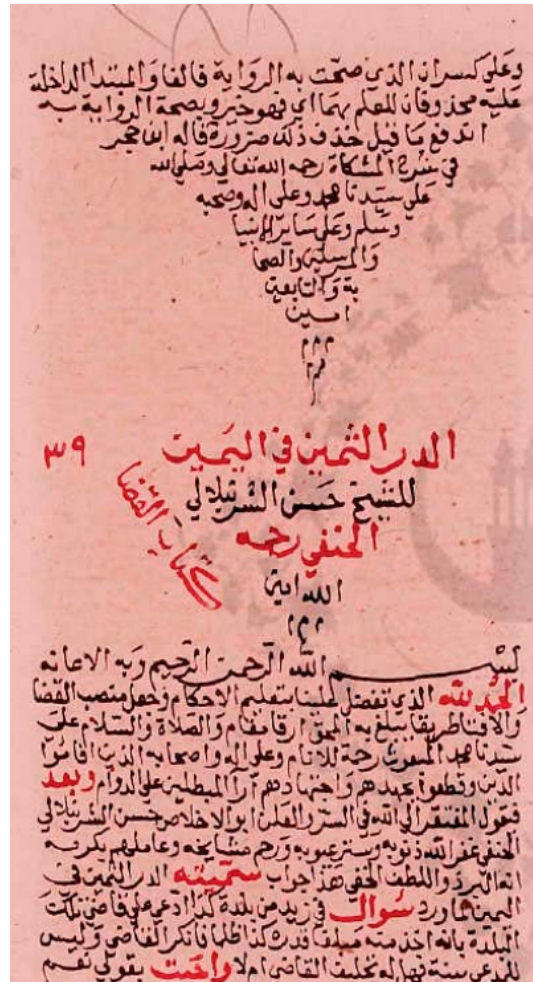 وعلى كسران الذي صحت به الرواية فالفا والمبتدا الداخلة
عليه محذوفان للعلم بهما اي فهو خير وبصحة الرواية به
اندفع ما قيل حذف ذلك ضرورة قاله ابن حجر
في شرح المشكاة رحمه الله تعالى وصلى الله
على سيدنا محمد وعلى اله وصحبه
وسلم وعلى سائر الانبيا
والمرسلين والصحا
بة والتابعين
امين
م م م
الدر الثمين في اليمين ٣٩
للشيخ حسن الشرنبلالي
كتاب القضا
الحنفي رحمه
الله امين
م م
بسم الله الرحمن الرحيم وبه الاعانه
الحمد لله الذي تفضل علينا بتعليم الاحكام وجعل منصب القضا
والافتا طريقا يبلغ به المحق ارقا مقام والصلاة والسلام على
سيدنا محمد المبعوث رحمة للانام وعلى اله واصحابه الذين اقاموا
الدين وقطعوا بجهدهم واجتهادهم ارآ المبطلين على الدوام وبعد
فيقول المفتقر الى الله في السر والعلن ابو الاخلاص حسن الشرنبلالي
الحنفي غفر الله ذنوبه وستر عيوبه ورحم مشايخه وعاملهم بكرمه
انه البر ذو اللطف الخفي هذا جواب سميته الدر الثمين في
اليمين لما ورد سوال في زيد من بلدة كذا ادعى على قاضي تلك
البلدة بانه اخذ منه مبلغا قدره كذا ظلما فانكر القاضي وليس
للمدعي بينة فهل له تحليف القاضي ام لا واجبت بقولي نعم